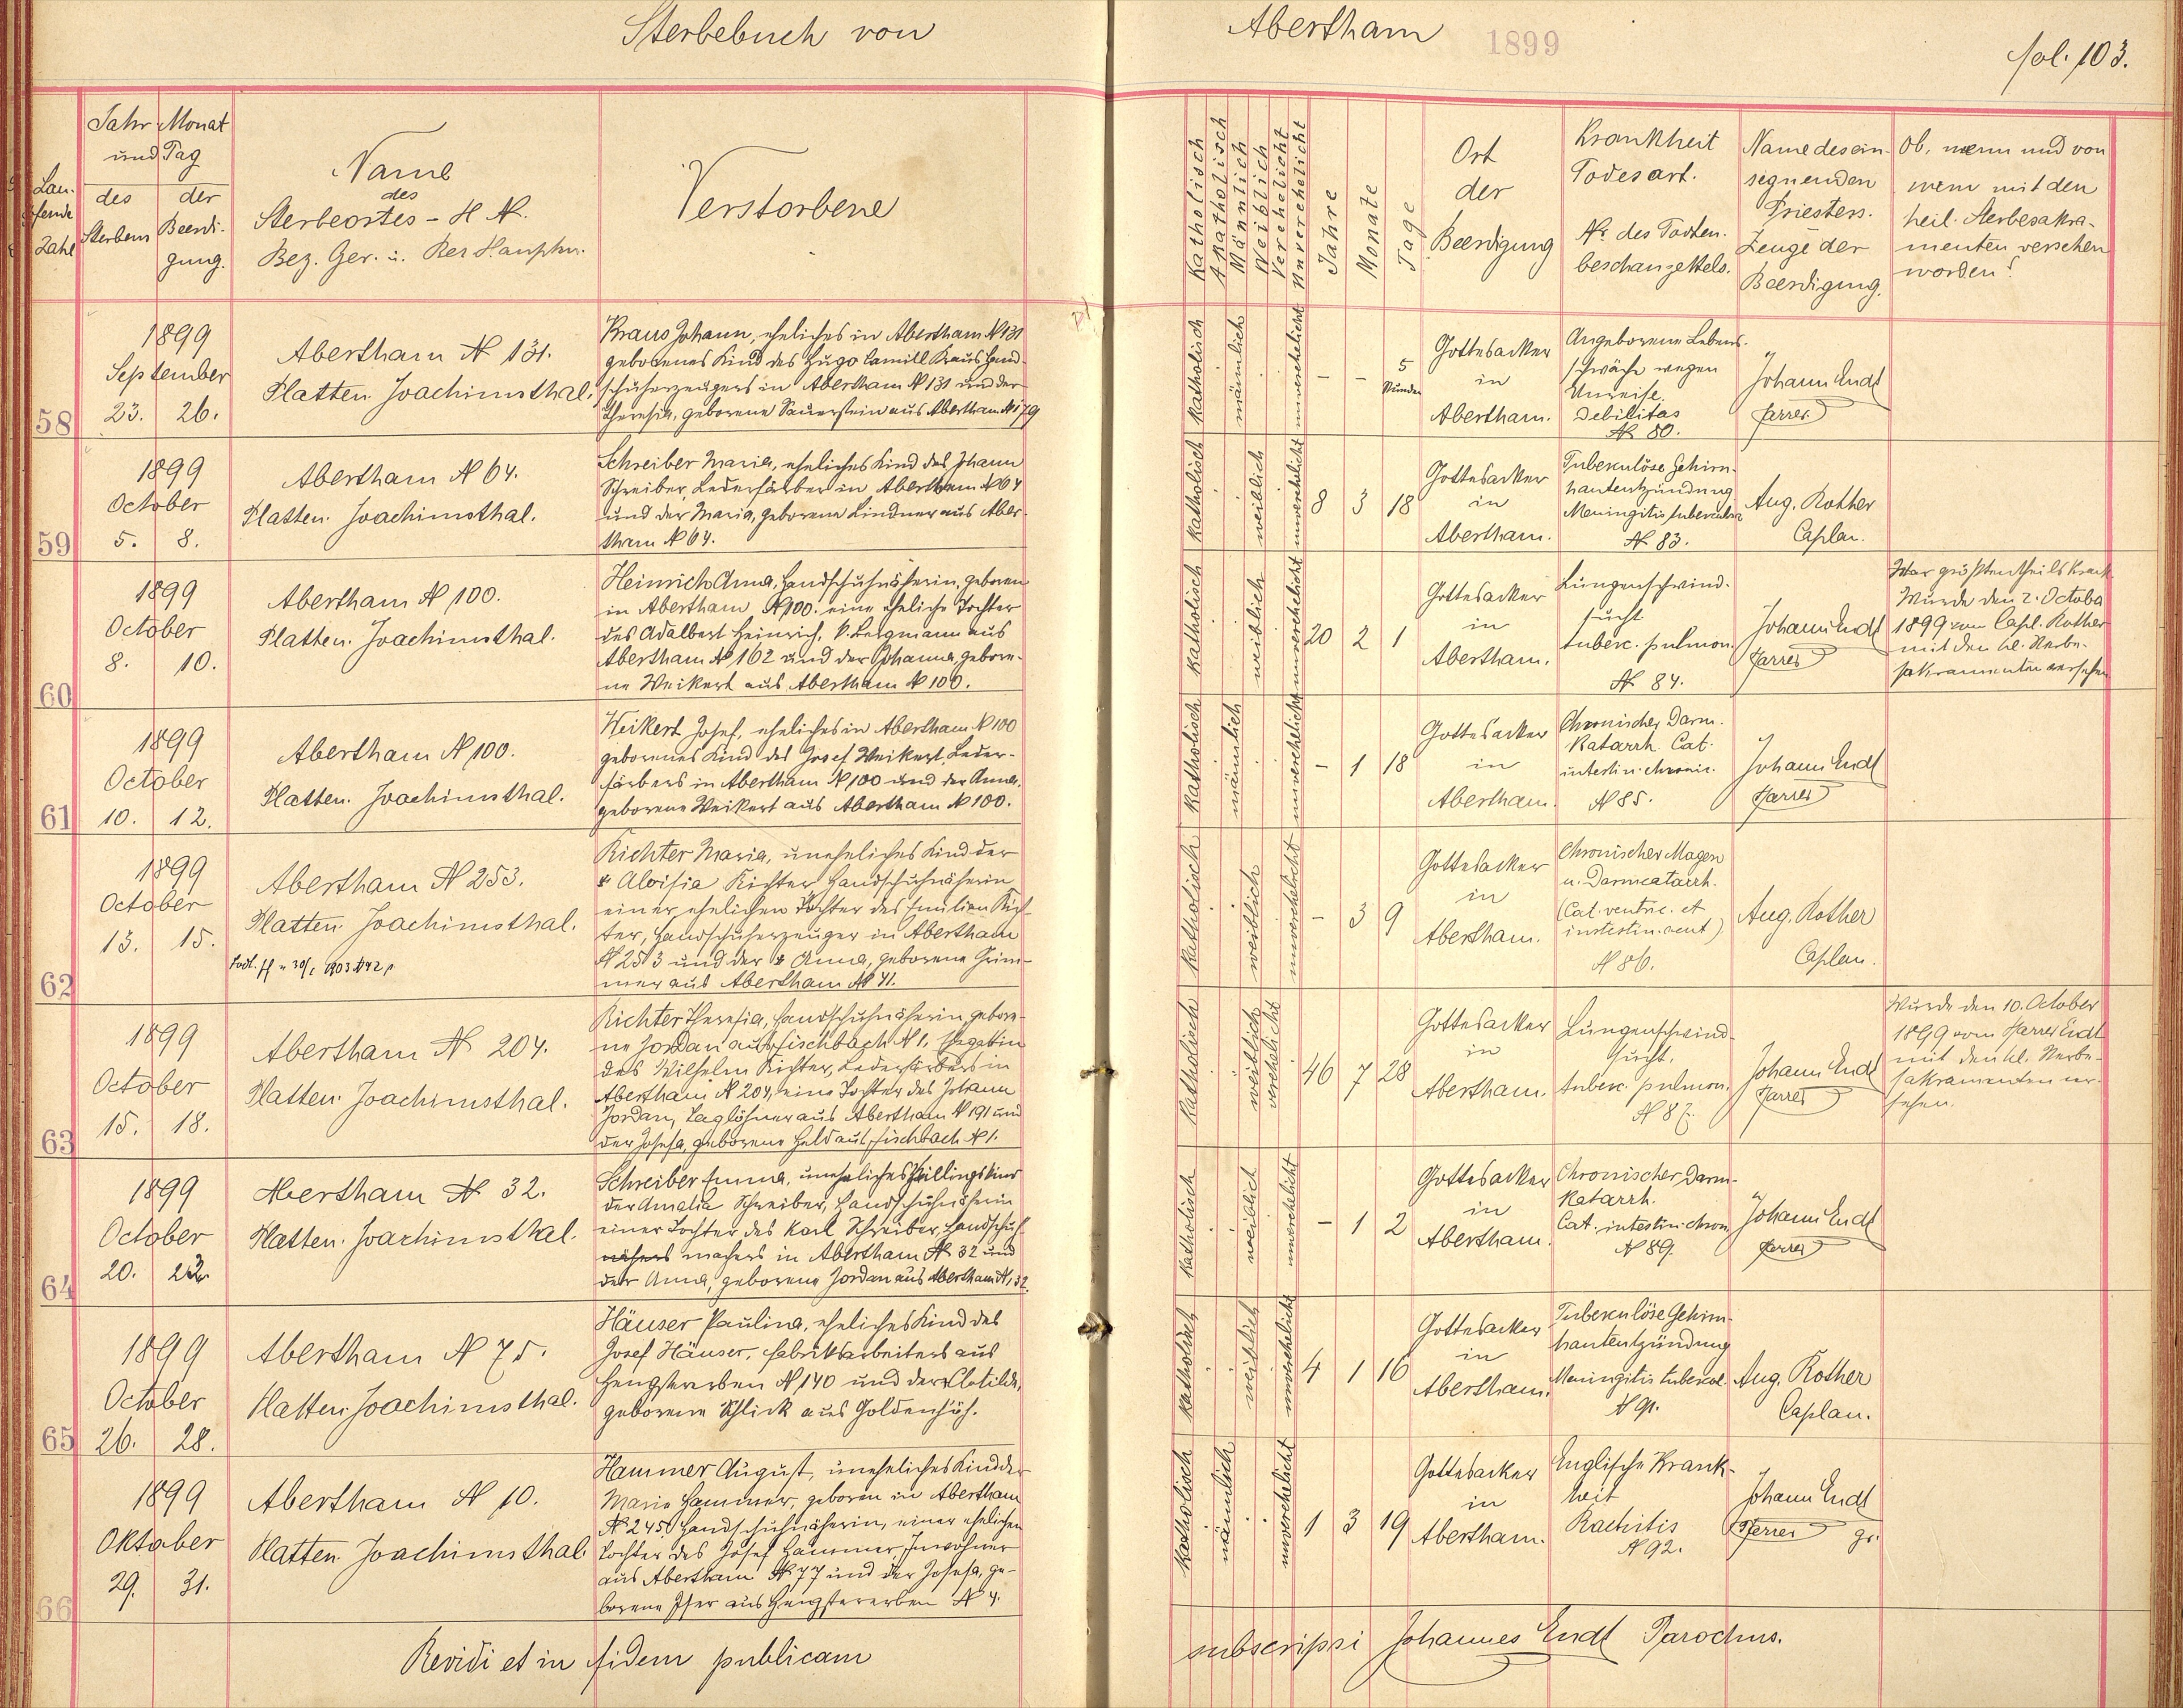 Sterbebuch von Abertham 1899 fol. 103.
Laufende Zahl
Jahr Monat
und Tag
des Sterbens
der Beerdigung.
Name
des
Sterbeortes - H N.
Bez. Ger. u.
Verstorbene
Katholisch
Akatholisch
Männlich
Weiblich
Verehelicht
Unverehelicht
Jahre
Monate
Tage
Ort
der
Beerdigung
Krankheit
Todesart.
No. des Todten-
beschauzettels.
Name des ein-
segnenden
Priesters.
Zeuge der
Beerdigung.
Ob, wenn und von
wem mit den
heil. Sterbesakra-
menten versehen
worden?
58
1899
September
23. 26.
Abertham N 131.
Platten. Joachimsthal.
Kraus Johann, eheliches in Abertham N 131
geborenes Kind des Hugo Camill Kraus Hand-
schuherzeugers in Abertham N 131 und der
Theresia, geborene Sauerstein aus Abertham N 179
katholisch
männlich
unverehelicht
- - 5 Stunden
Gottesacker
in
Abertham.
Angeborene Lebens-
schwäche wegen
Unreife.
Debilitas
N 80.
Johann Endt
Pfarrer
59
1899
October
5. 8.
Abertham N 64.
Platten. Joachimsthal.
Schreiber Maria, eheliches Kind des Johann
Schreiber, Lederfärber in Abertham N 64
und der Maria, geborene Lindner aus Aber-
tham N 64.
katholisch
weiblich
unverehelicht
8 3 18
Gottesacker
in
Abertham.
Tuberkulöse Gehirn-
hautentzündung
Meningitis tuberculos
N 83.
Aug. Rother
Caplan.
60
1899
October
8. 10.
Abertham N 100.
Platten. Joachimsthal.
Heinrich Anna, Handschuhnäherin, geboren
in Abertham N 100. eine eheliche Tochter
des Adalbert Heinrich, Bergmann aus
Abertham N 162 und der Johanna, gebore-
ne Weikert aus Abertham N 100.
katholisch
weiblich
unverehelicht
20 2 1
Gottesacker
in
Abertham.
Lungenschwind-
sucht
tuberc. pulmon.
N 84.
Johann Endt
Pfarrer
War größtentheils krank
Wurde den 2. October
1899 vom Capl. Rother
mit den hl. Sterbe-
sakramenten versehen
61
1899
October
10. 12.
Abertham N 100.
Platten. Joachimsthal.
Weikert Josef, eheliches in Abertham N 100
geborenes Kind des Josef Weikert, Leder-
färbers in Abertham N 100 und der Anna,
geborene Weikert aus Abertham N 100.
katholisch
männlich
unverehelicht
- 1 18
Gottesacker
in
Abertham.
Chronischer Darm-
katarrh. Cat.
intestin. chronic.
N 85.
Johann Endt
Pfarrer
62
1899
October
13. 15.
Abertham N 253.
Platten. Joachimsthal.
Richter Maria, uneheliches Kind der
Aloisia Richter Handschuhnäherin
einer ehelichen Tochter des Emilian Rich-
ter, Handschuherzeuger in Abertham
N 253 und der Anna, geborene Grim-
mer aus Abertham N 41.
katholisch
weiblich
unverehelicht
- 3 9
Gottesacker
in
Abertham.
Chronischer Magen
u. Darmcatarrh.
(Cat. ventric. et
intestin. acut)
N 86.
Aug. Rother
Caplan.
63
1899
October
15. 18.
Abertham N 204.
Platten. Joachimsthal.
Richter Theresia, Handschuhnäherin, gebore-
ne Jordan aus Fischbach N 1. Ehegattin
des Wilhelm Richter, Lederfärbers in
Abertham N 204, eine Tochter des Johann
Jordan, Taglöhner aus Abertham N 191 und
der Josefa, geborene Held aus Fischbach N 1.
katholisch
weiblich
verehelicht
46 7 28
Gottesacker
in
Abertham.
Lungenschwind-
sucht.
tuberc. pulmon.
N 87.
Johann Endt
Pfarrer
Wurde den 10. October
1899 vom Pfarrer Endt
mit den hl. Sterbe-
sakramenten ver-
sehen.
64
1899
October
20. 23.
Abertham N 32.
Platten. Joachimsthal.
Schreiber Emma, uneheliches Zwillingskind
der Amalia Schreiber, Handschuhnäherin
einer Tochter des Karl Schreiber, Handschuh-
nähers machers in Abertham N 32 und
der Anna, geborene Jordan aus Abertham N 132.
katholisch
weiblich
unverehelicht
- 1 2
Gottesacker
in
Abertham.
Chronischer Darm-
katarrh.
Cat. intestin. chron.
N 89.
Johann Endt
Pfarrer
65
1899
October
26. 28.
Abertham N 75.
Platten. Joachimsthal.
Häuser Paulina, eheliches Kind des
Josef Häuser, Fabriksarbeiters aus
Hengstererben N 140 und der Clotilde,
geborene Schlick aus Goldenhöh.
katholisch
weiblich
unverehelicht
4 1 16
Gottesacker
in
Abertham.
Tuberkulöse Gehirn-
hautentzündung
Meningitis tubercul.
N 91.
Aug. Rother
Caplan.
66
1899
Oktober
29. 31.
Abertham N 10.
Platten. Joachimsthal.
Hammer August, uneheliches Kind der
Marie Hammer, geboren in Abertham
N 245, Handschuhnäherin, einer ehelichen
Tochter des Josef Hammer, Inwohner
aus Abertham N 77 und der Josefa, ge-
borene Pser aus Hengstererben N 4.
katholisch
männlich
unverehelicht
1 3 19
Gottesacker
in
Abertham.
Englische Krank-
heit
Rachitis
N 92.
Johann Endt
Pfarrer gr.
Revidi et in fidem publicam subscripsi Johannes Endt Parochus.